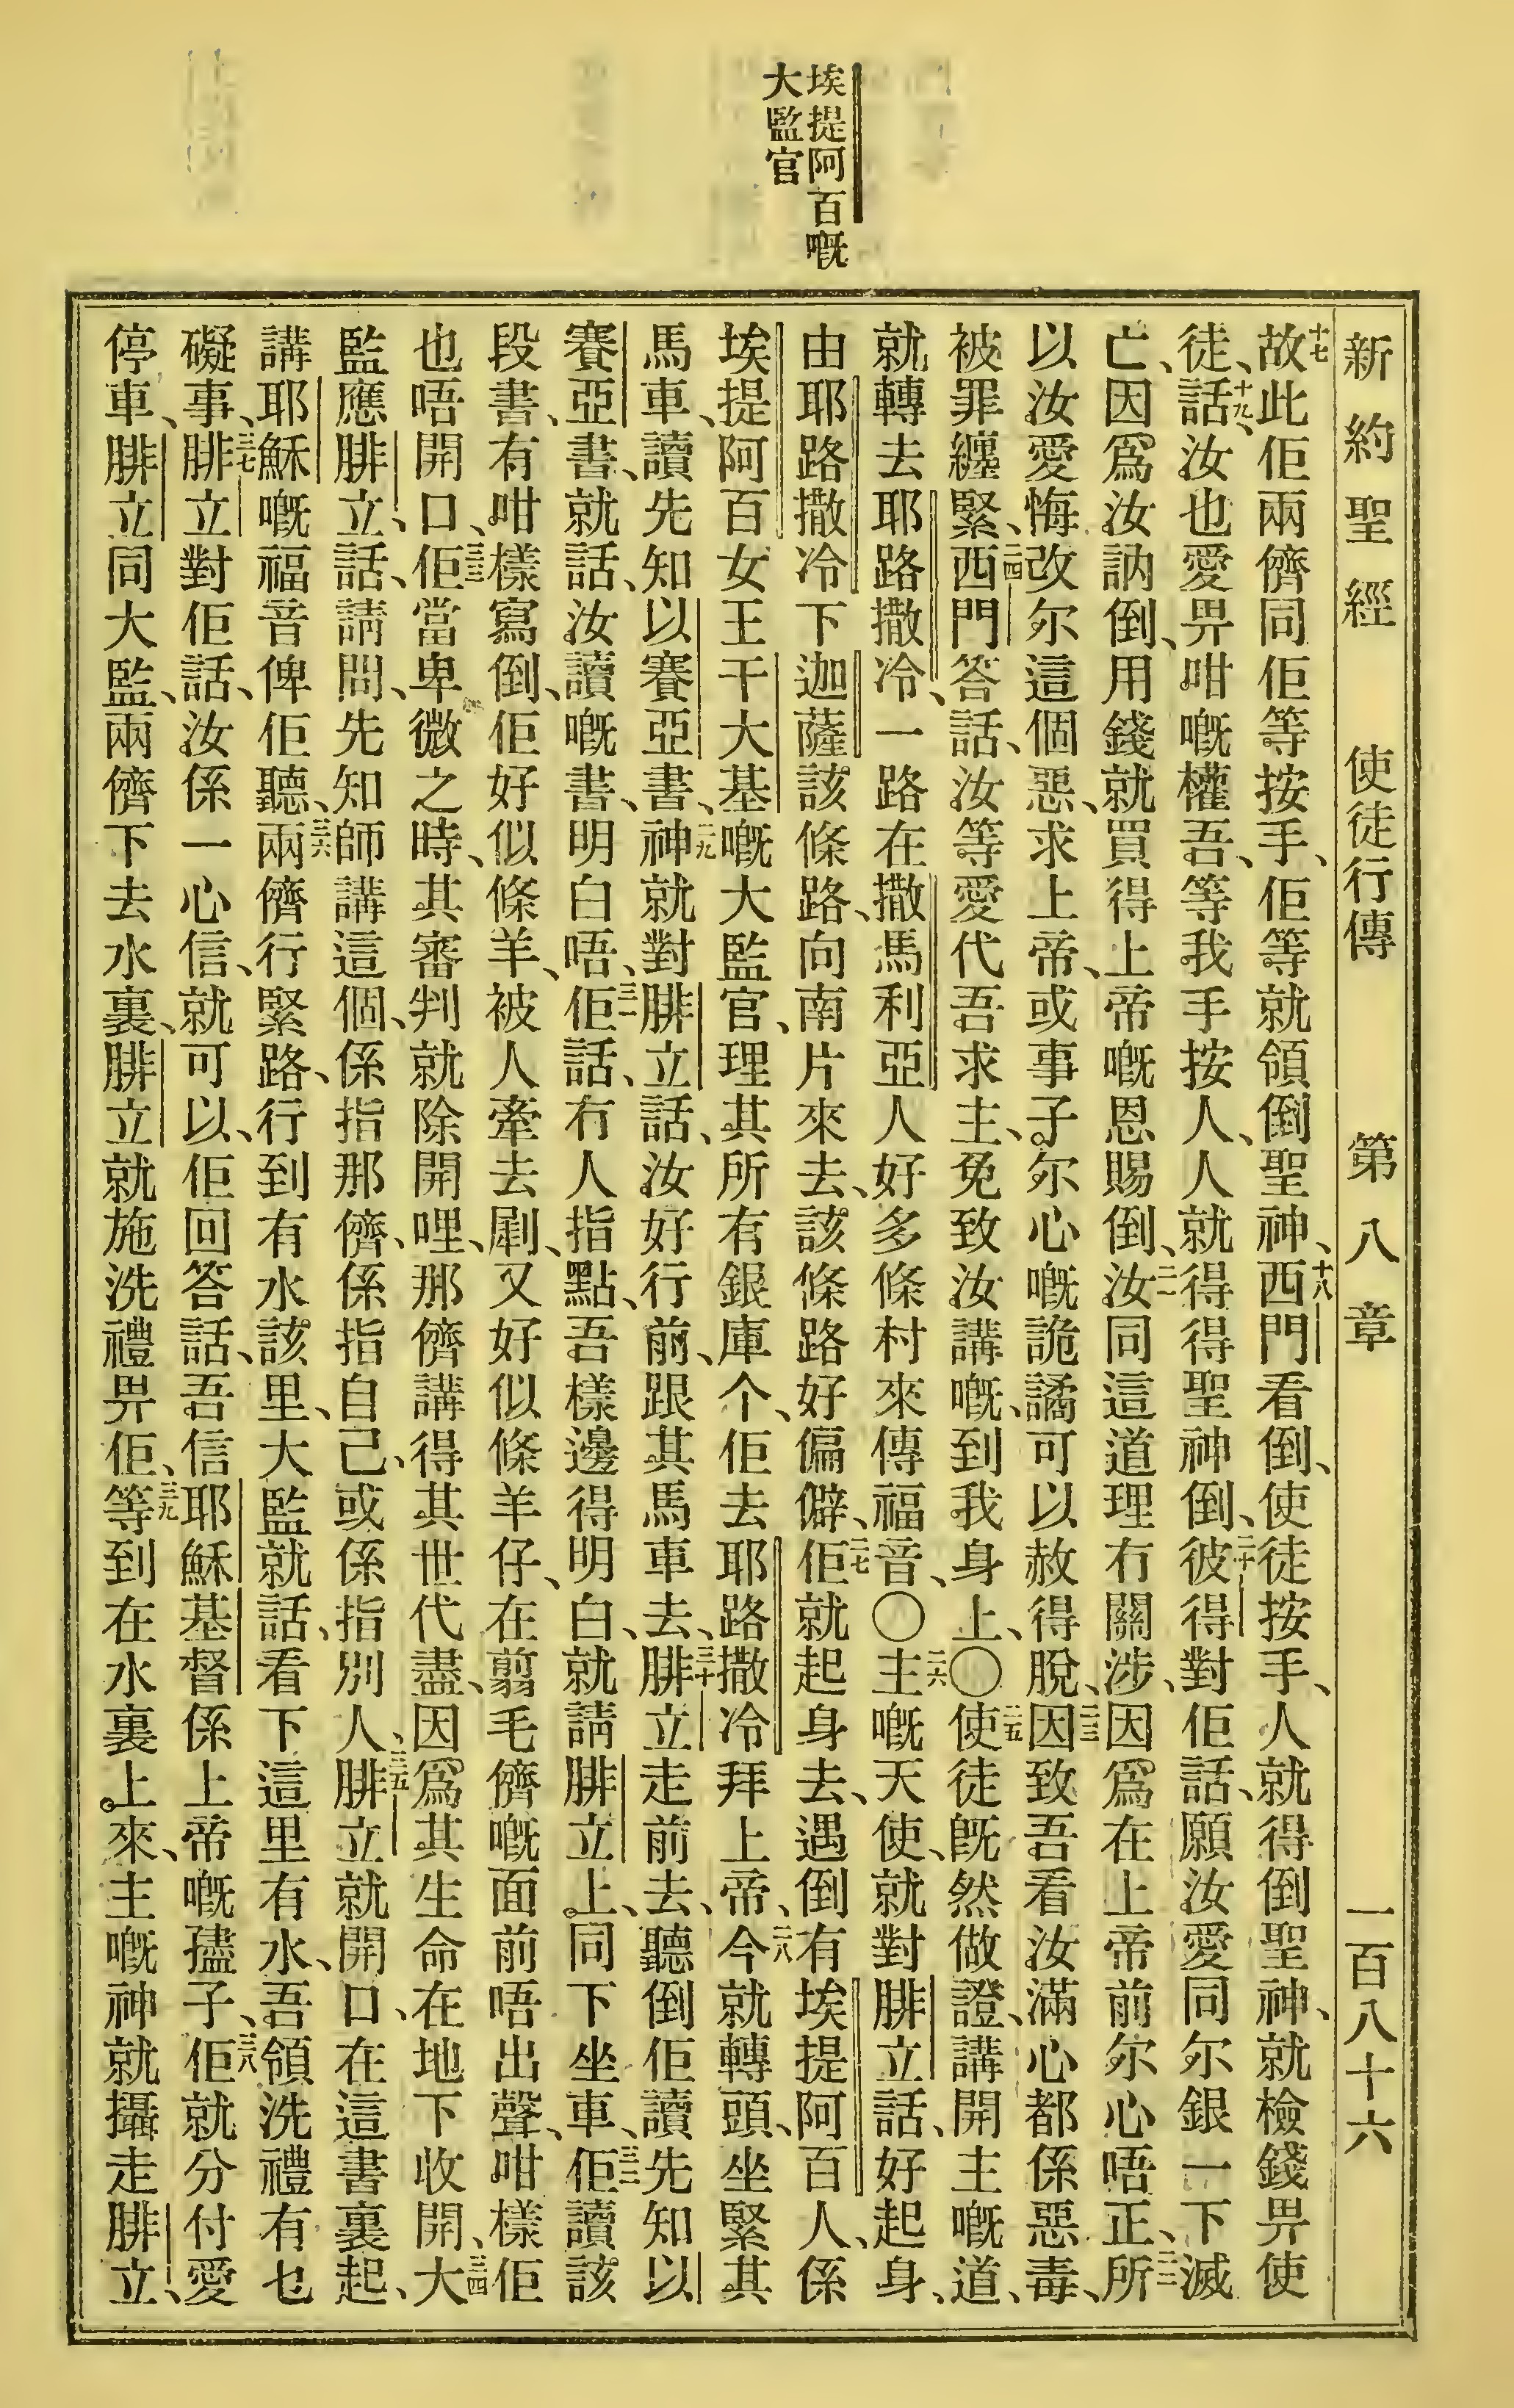 埃提阿百嘅
大監官
新約聖經 使徒行傳 第八章 一百八十六
十七故此佢兩儕同佢等按手、佢等就領倒聖神、十八西門看倒、使徒按手、人就得倒聖神、就檢錢畀使
徒、十九話、汝也愛畀咁嘅權吾、等我手按人、人就得得聖神倒、二十彼得對佢話、願汝愛同尔銀一下滅
亡、因爲汝訥倒、用錢就買得上帝嘅恩賜倒、二一汝同這道理冇關涉、因爲在上帝前尔心唔正、二二所
以汝愛悔改尔這個惡、求上帝、或事子尔心嘅詭譎可以赦得脫、二三因致吾看汝滿心都係惡毒、
被罪纏緊、二四西門答話、汝等愛代吾求主、免致汝講嘅、到我身上、〇二五使徒既然做證、講開主嘅道、
就轉去耶路撒冷、一路在撒馬利亞人好多條村來傳福音、〇二六主嘅天使、就對腓立話、好起身、
由耶路撒冷下迦薩該條路、向南片來去、該條路好偏僻、二七佢就起身去、遇倒有埃提阿百人、係
埃提阿百女王干大基嘅大監官、理其所有銀庫个、佢去耶路撒冷拜上帝、二八今就轉頭、坐緊其
馬車、讀先知以賽亞書、二九神就對腓立話、汝好行前、跟其馬車去、三十腓立走前去、聽倒佢讀先知以
賽亞書、就話、汝讀嘅書、明白唔、三一佢話、冇人指點、吾樣邊得明白、就請腓立上、同下坐車、三二佢讀該
段書、有咁樣寫倒、佢好似條羊、被人牽去劏、又好似條羊仔、在剪毛儕嘅面前唔出聲、咁樣佢
也唔開口、三三佢當卑微之時、其審判就除開哩、那儕講得其世代盡、因爲其生命在地下收開、三四大
監應腓立、話、請問、先知師講這個、係指那儕、係指自己、或係指別人、三五腓立就開口、在這書裏起、
講耶穌嘅福音俾佢聽、三六兩儕行緊路、行到有水該里、大監就話、看下這里有水、吾領洗禮有乜
礙事、三七腓立對佢話、汝係一心信、就可以、佢回答話、吾信耶穌基督係上帝嘅孻子、三八佢就分付愛
停車、腓立同大監、兩儕下去水裏、腓立就施洗禮畀佢、三九等到在水裏上來、主嘅神就攝走腓立、